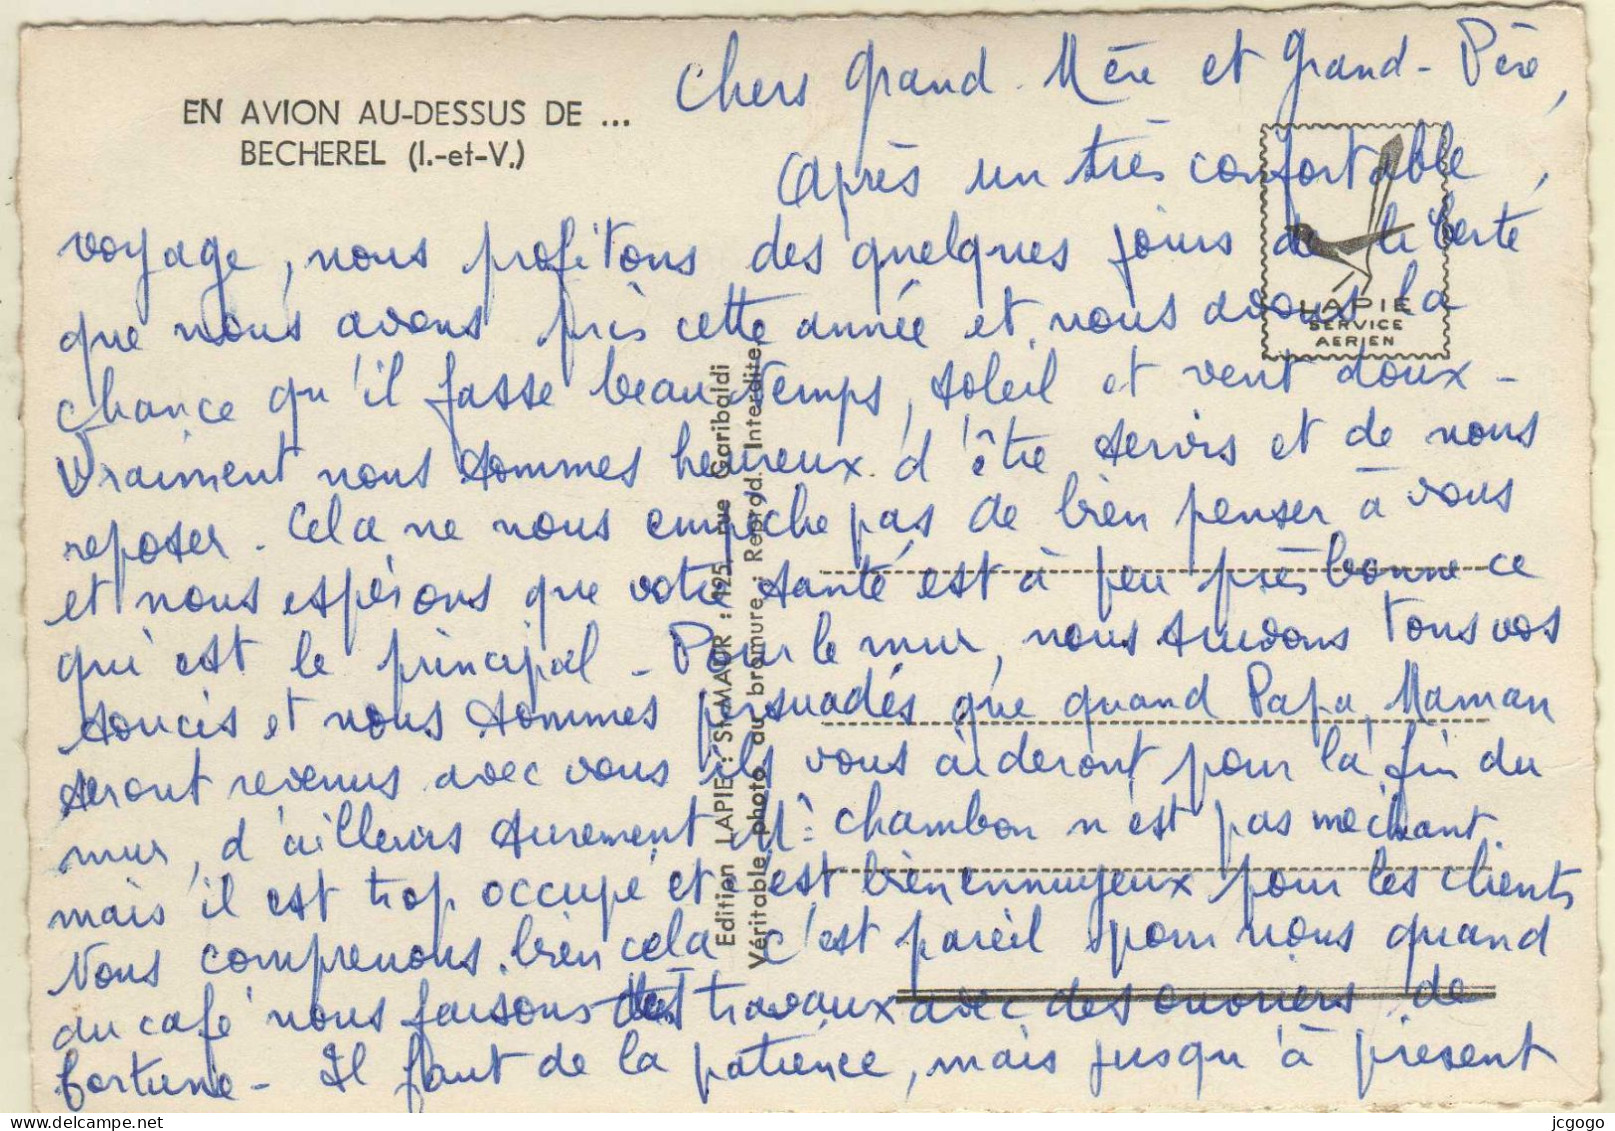 EN AVION AU-DESSUS DE ...
BECHEREL (I.-et-V.)
Chers Grand-Mère et Grand-Père,
Après un très confortable
voyage, nous profitons des quelques jours de liberté
que nous avons pris cette année et nous avons la
chance qu'il fasse beau temps, soleil et vent doux -
Vraiment nous sommes heureux d'être servis et de nous
reposer. Cela ne nous empêche pas de bien penser à vous
et nous espérons que votre santé est à peu près bonne ce
qui est le principal - Pour le mur, nous suivons tous vos
soucis et nous sommes persuadés que quand Papa, Maman
seront revenus avec vous ils vous aideront pour la fin du
mur, d'ailleurs surement Mr chambon n'est pas méchant.
mais il est trop occupé et c'est bien ennuyeux pour les clients
Nous comprenons bien cela c'est pareil pour nous quand
au café nous faisons des travaux avec des ouvriers de
fortune - Il faut de la patience, mais jusqu'à présent
LAPIE
SERVICE
AERIEN
Edition LAPIE : St-MAUR : 125, rue Garibaldi
Véritable photo au bromure. Reprod. Interdite.
delcampe.net
jcgogo